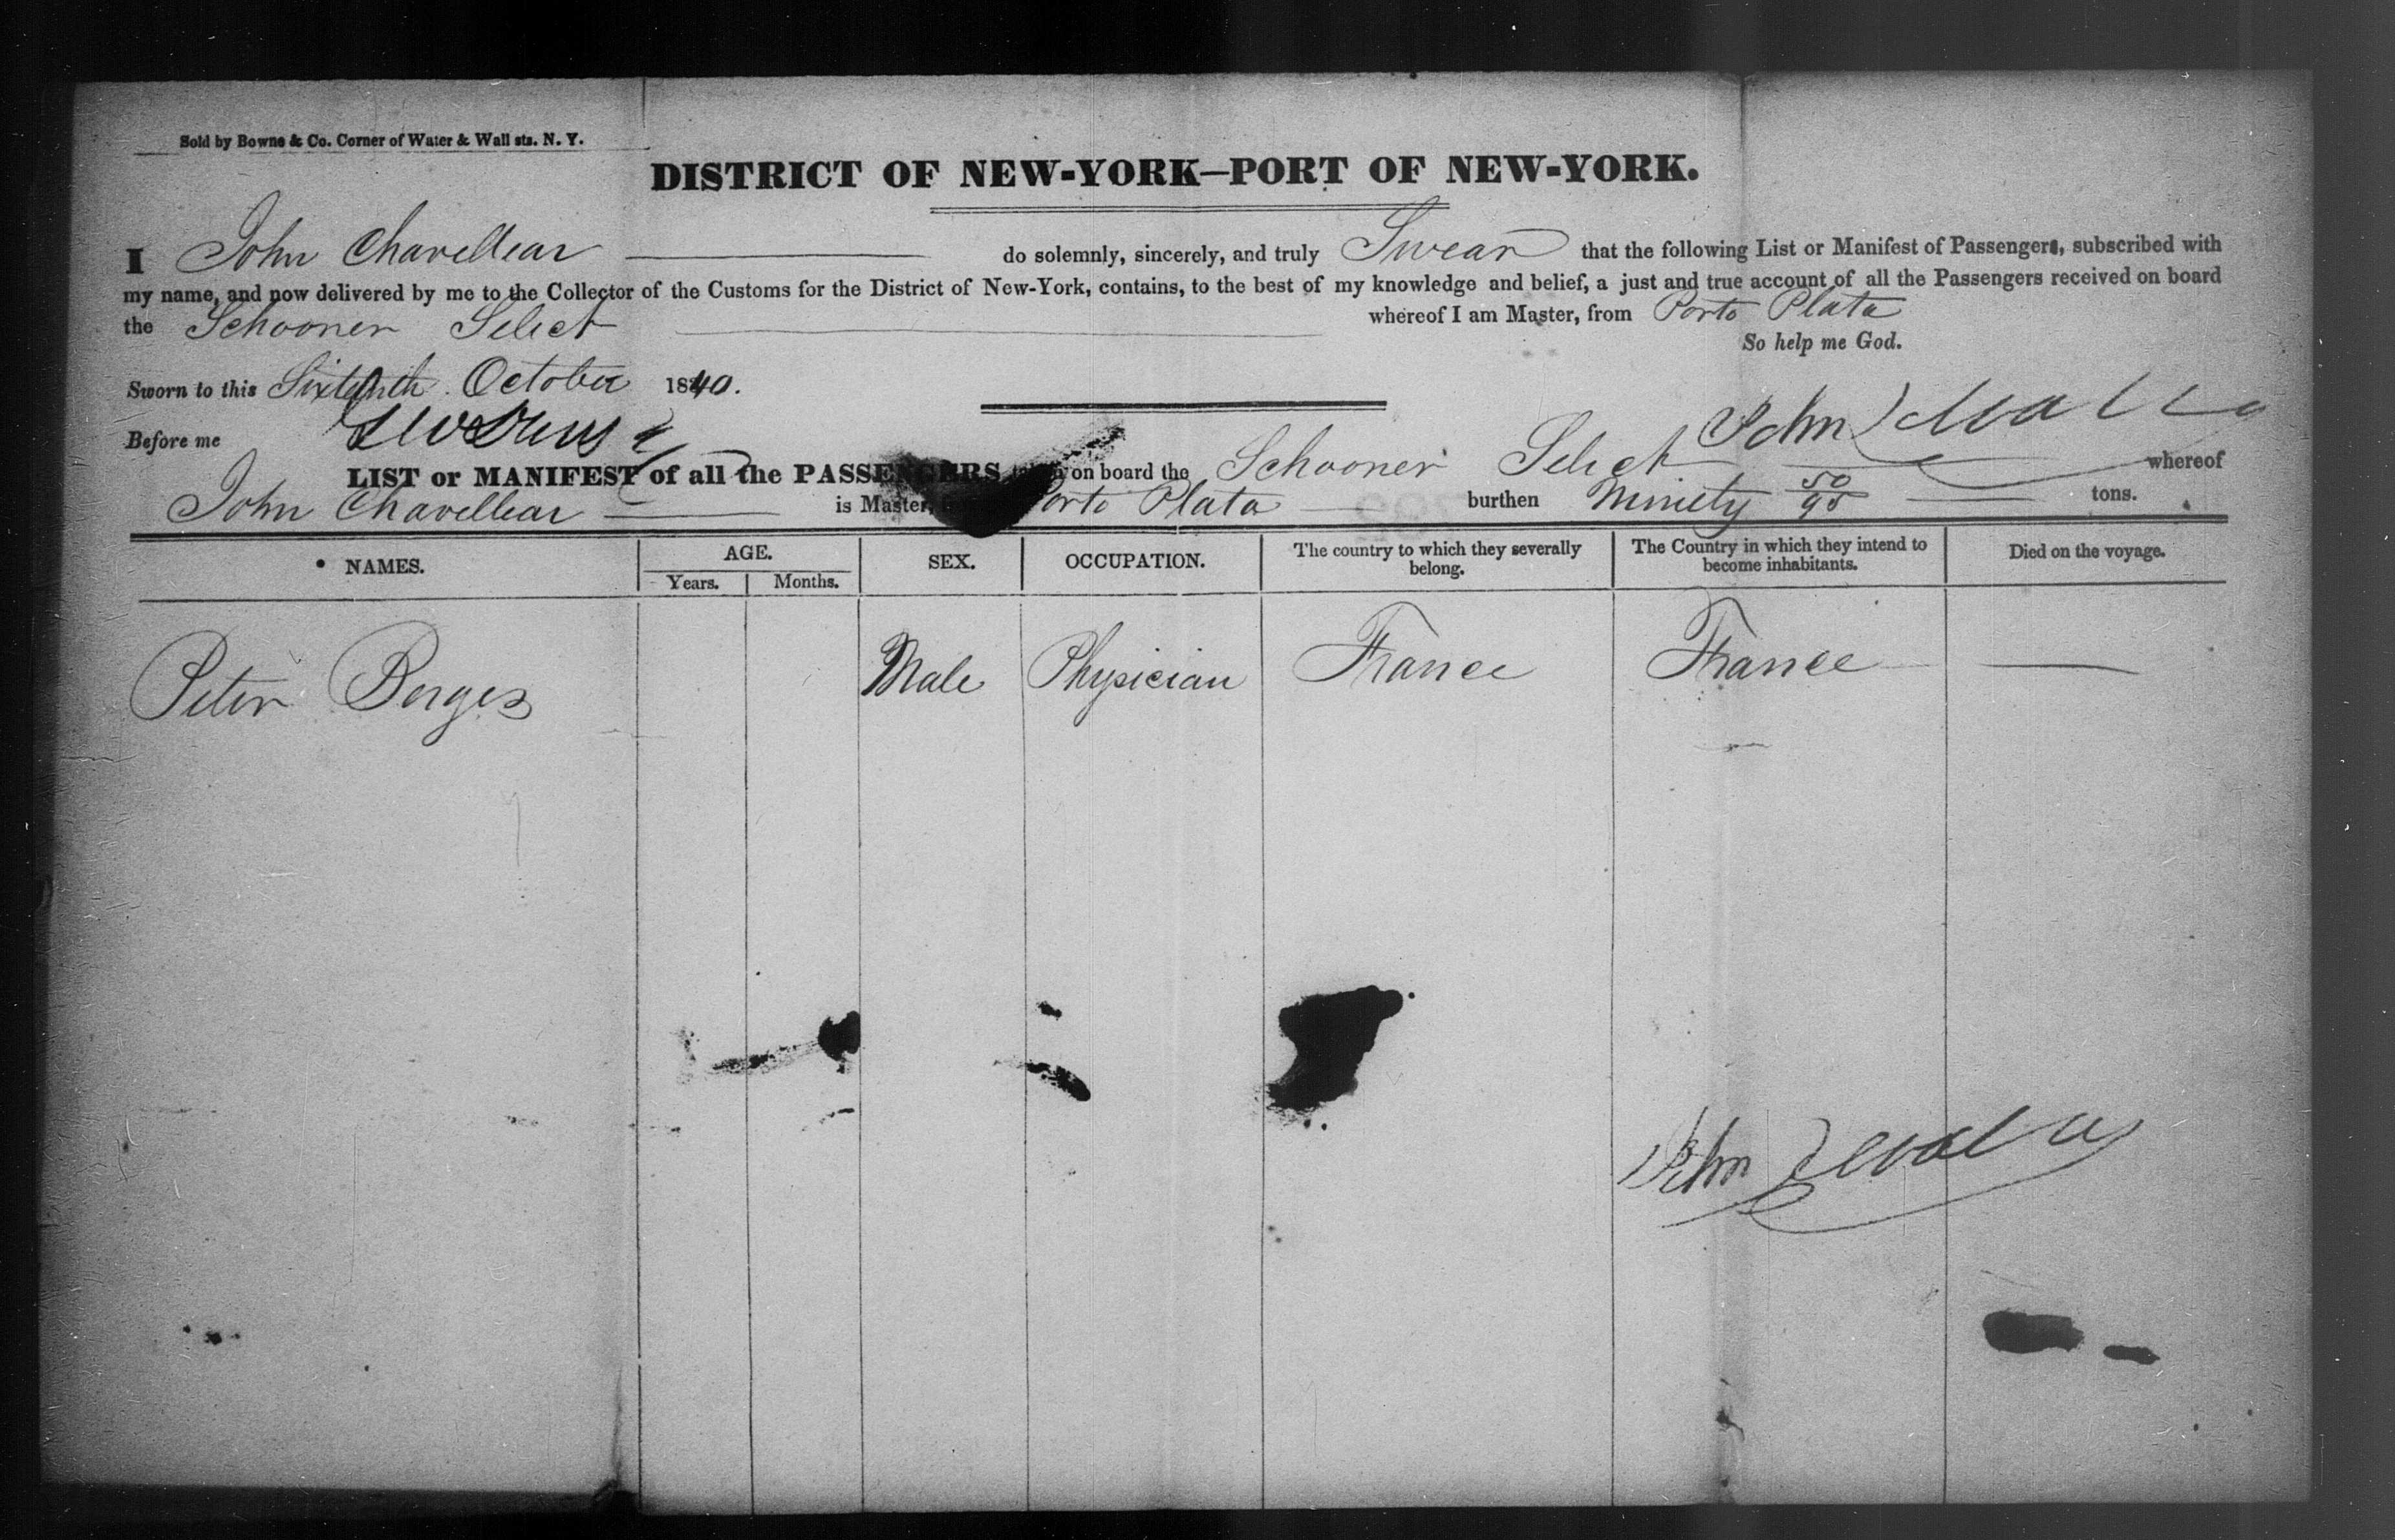 Sold by Bowne & Co. Corner of Water & Wall sts. N. Y.
DISTRICT OF NEW-YORK—PORT OF NEW-YORK.
I John Chavellear do solemnly, sincerely, and truly Swear that the following List or Manifest of Passengers, subscribed with
my name, and now delivered by me to the Collector of the Customs for the District of New-York, contains, to the best of my knowledge and belief, a just and true account of all the Passengers received on board
the Schooner Select whereof I am Master, from Porto Plata
So help me God.
Sworn to this Sixteenth October 1840.
Before me
John
LIST or MANIFEST of all the PASSENGERS on board the Schooner Select whereof
John Chavellear is Master, Porto Plata burthen Ninety 50/95 tons.
NAMES. AGE. SEX. OCCUPATION. The country to which they severally belong. The Country in which they intend to become inhabitants. Died on the voyage.
Years. Months.
Peter Borges Male Physician France France —
John